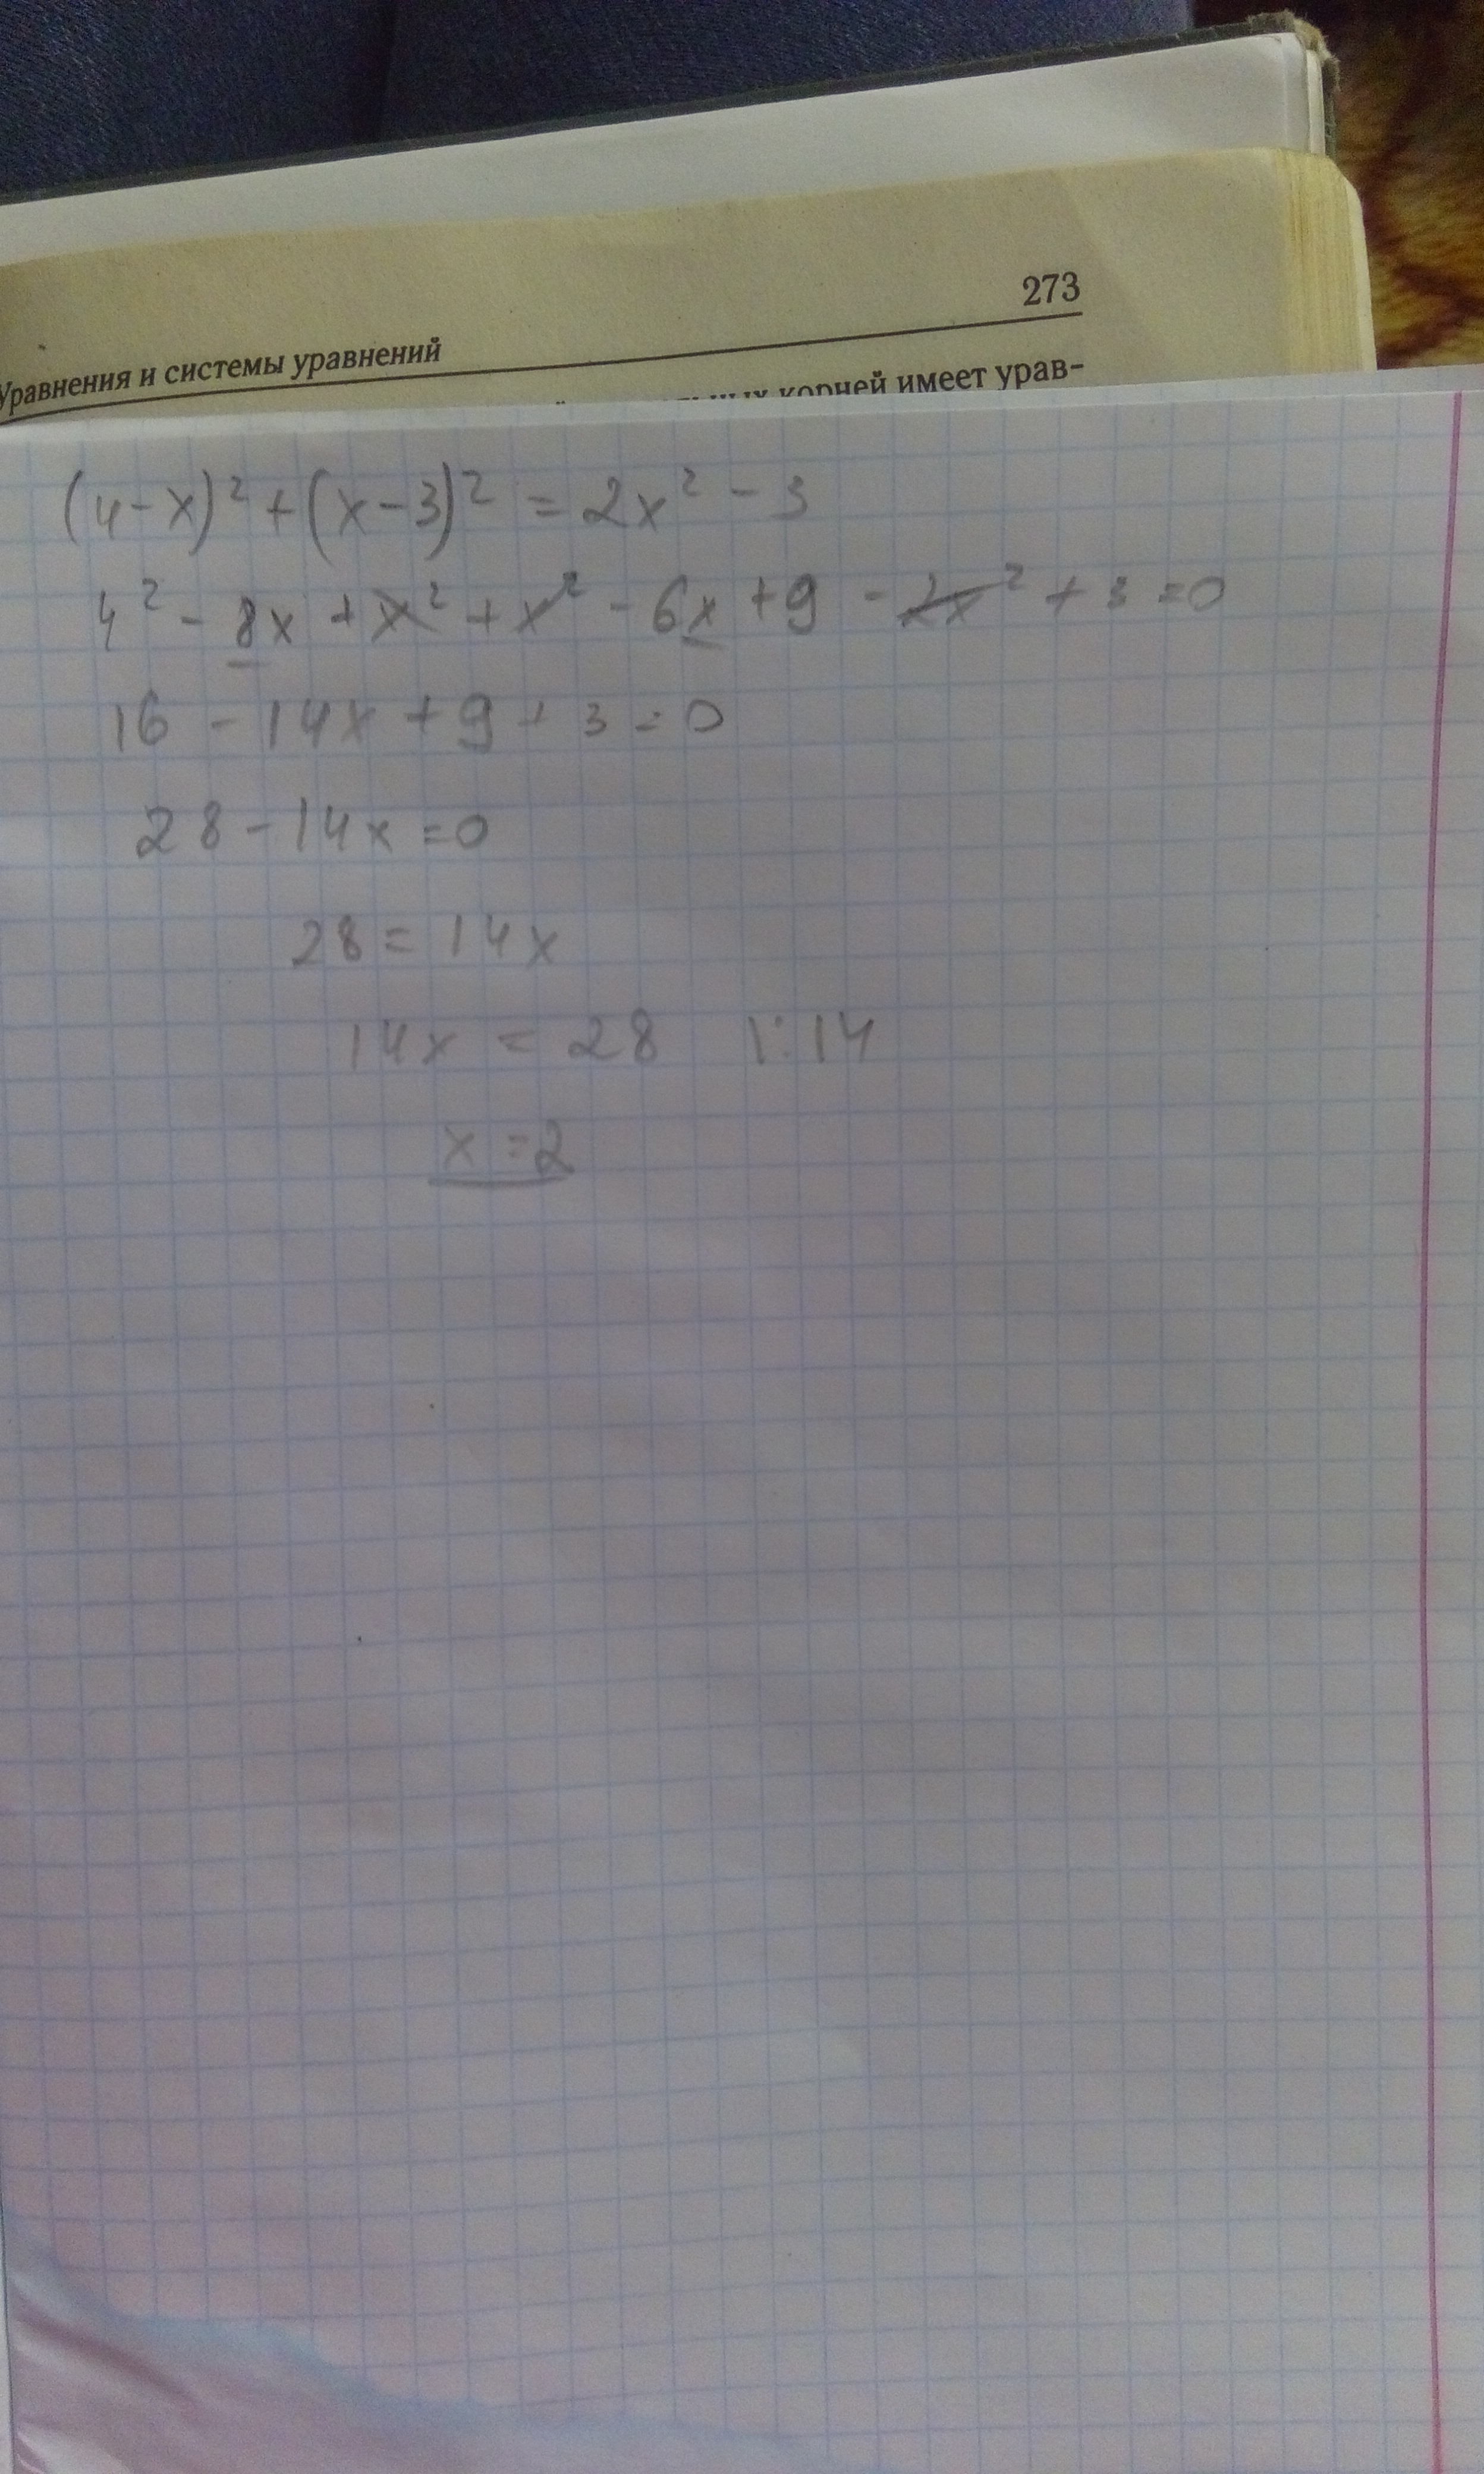 273
Уравнения и системы уравнений
корней имеет урав-
(4-x)² + (x-3)² = 2x² - 3
4² - 8x + x² + x² - 6x + 9 - 2x² + 3 = 0
16 - 14x + 9 + 3 = 0
28 - 14x = 0
28 = 14x
14x = 28 |:14
x = 2